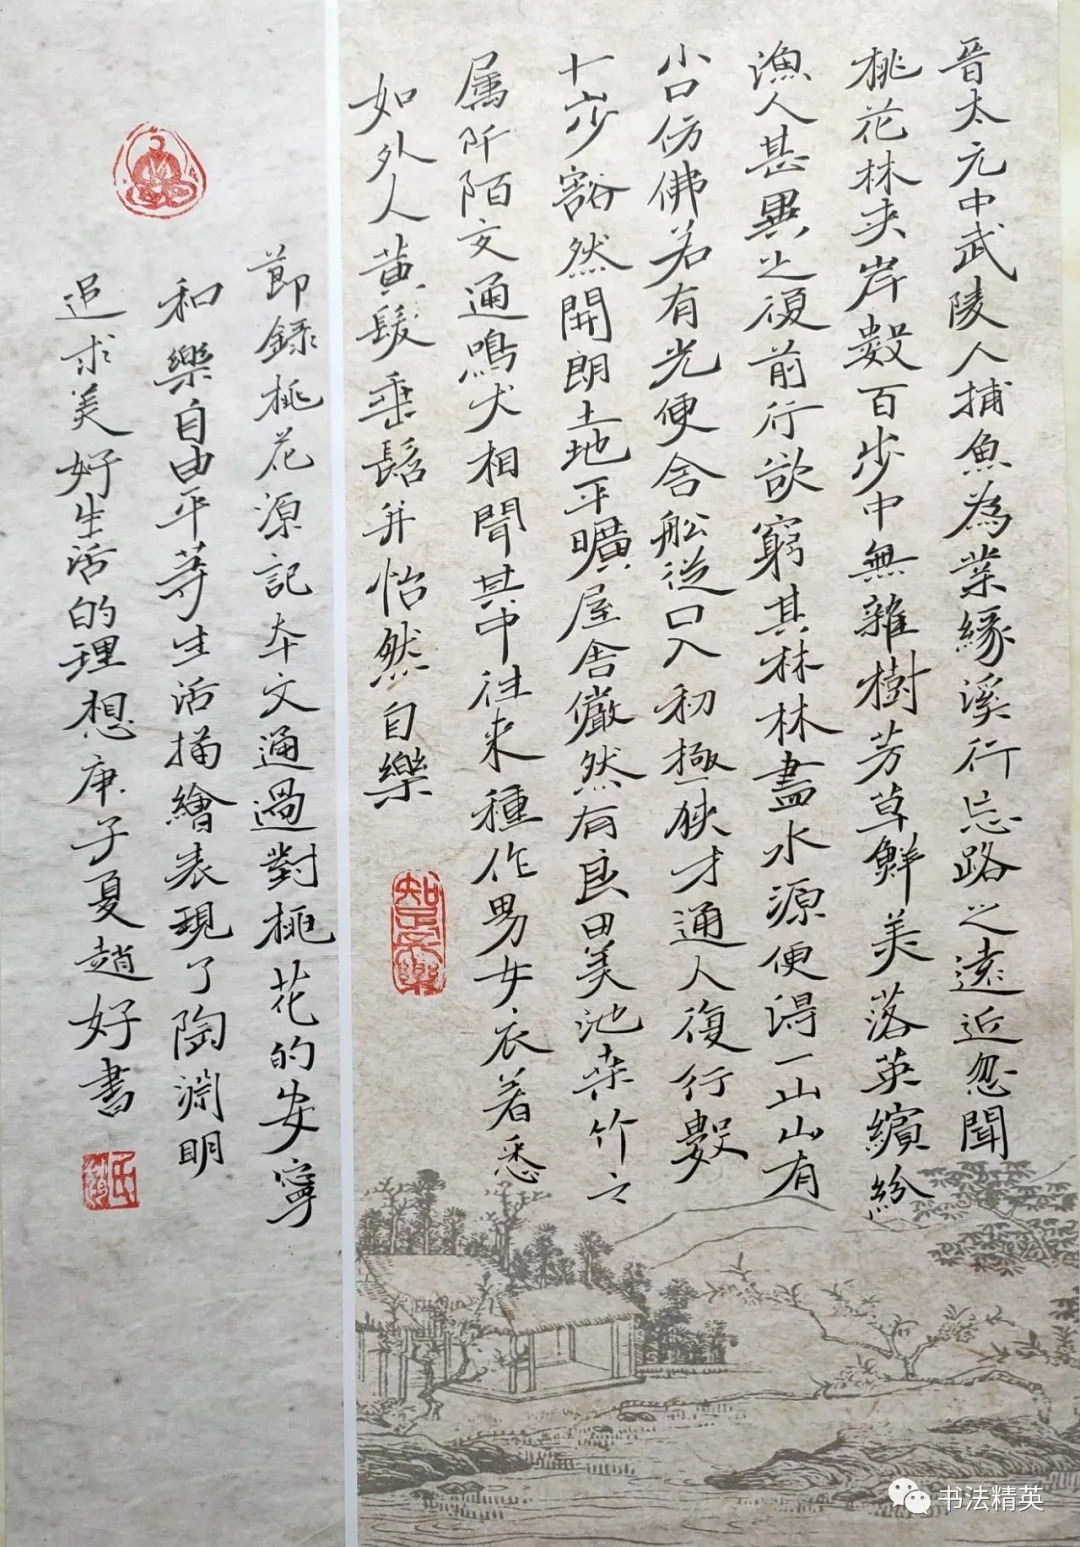 晉太元中武陵人捕魚為業緣溪行忘路之遠近忽聞
桃花林夹岸數百步中無雜樹芳草鮮美落英繽紛
漁人甚異之復前行欲窮其林林盡水源便得一山山有
小口仿佛若有光便舍船從口入初極狹才通人復行數
十步豁然開朗土地平曠屋舍儼然有良田美池桑竹之
属阡陌交通鳴犬相聞其中往来種作男女衣着悉
如外人黄髮垂髫并怡然自樂
知足常樂
節錄桃花源記本文通過對桃花的安寧
和樂自由平等生活描繪表現了陶渊明
追求美好生活的理想庚子夏趙好書
书法精英